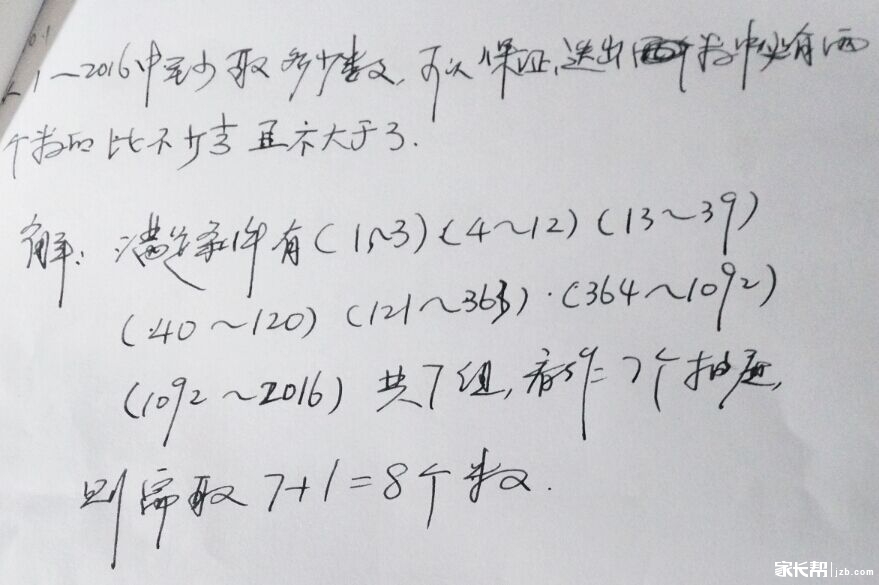 1~2016中至少取多少数,可以保证,选出数中必有两
个数的比不小于 且不大于3.
解:满足条件有(1~3)(4~12)(13~39)
(40~120)(121~363)·(364~1092)
(1092~2016)共7组,看作=7个抽屉,
则需取7+1=8个数.
家长帮|jzb.com